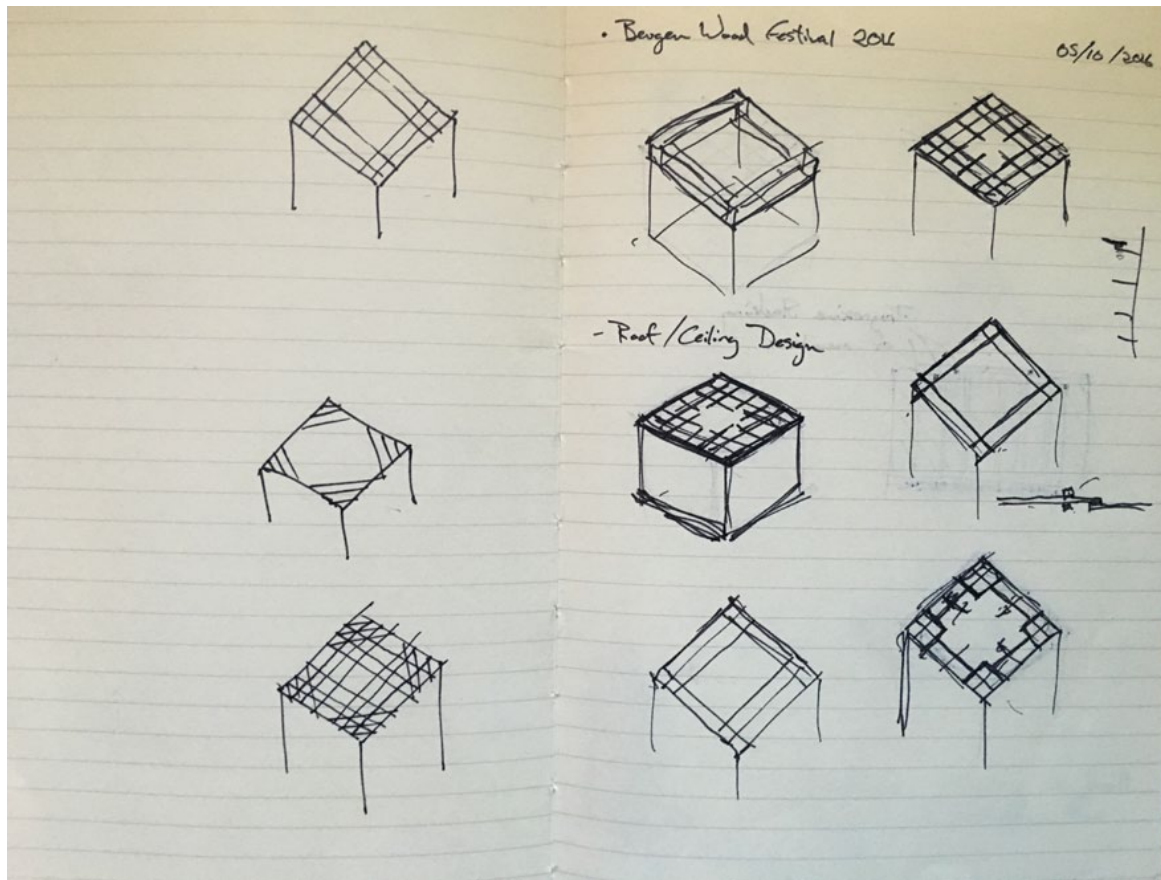 • Bergen Wood Festival 2016
05/10/2016
- Roof/Ceiling Design